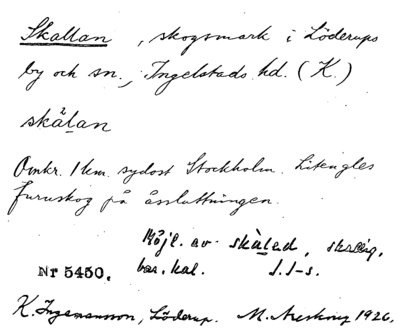 Skallan, skogsmark i Löderups
by och sn., Ingelstads hd. (K.)
skàlan
Omkr. 1 km. sydost Stockholm. Liten gles
furuskog på åssluttningen.
Möjl. av skàled, skallig,
bar, kal. J. I-s.
Nr 5450.
K. Ingemansson, Löderup. M. Areskoug 1926.